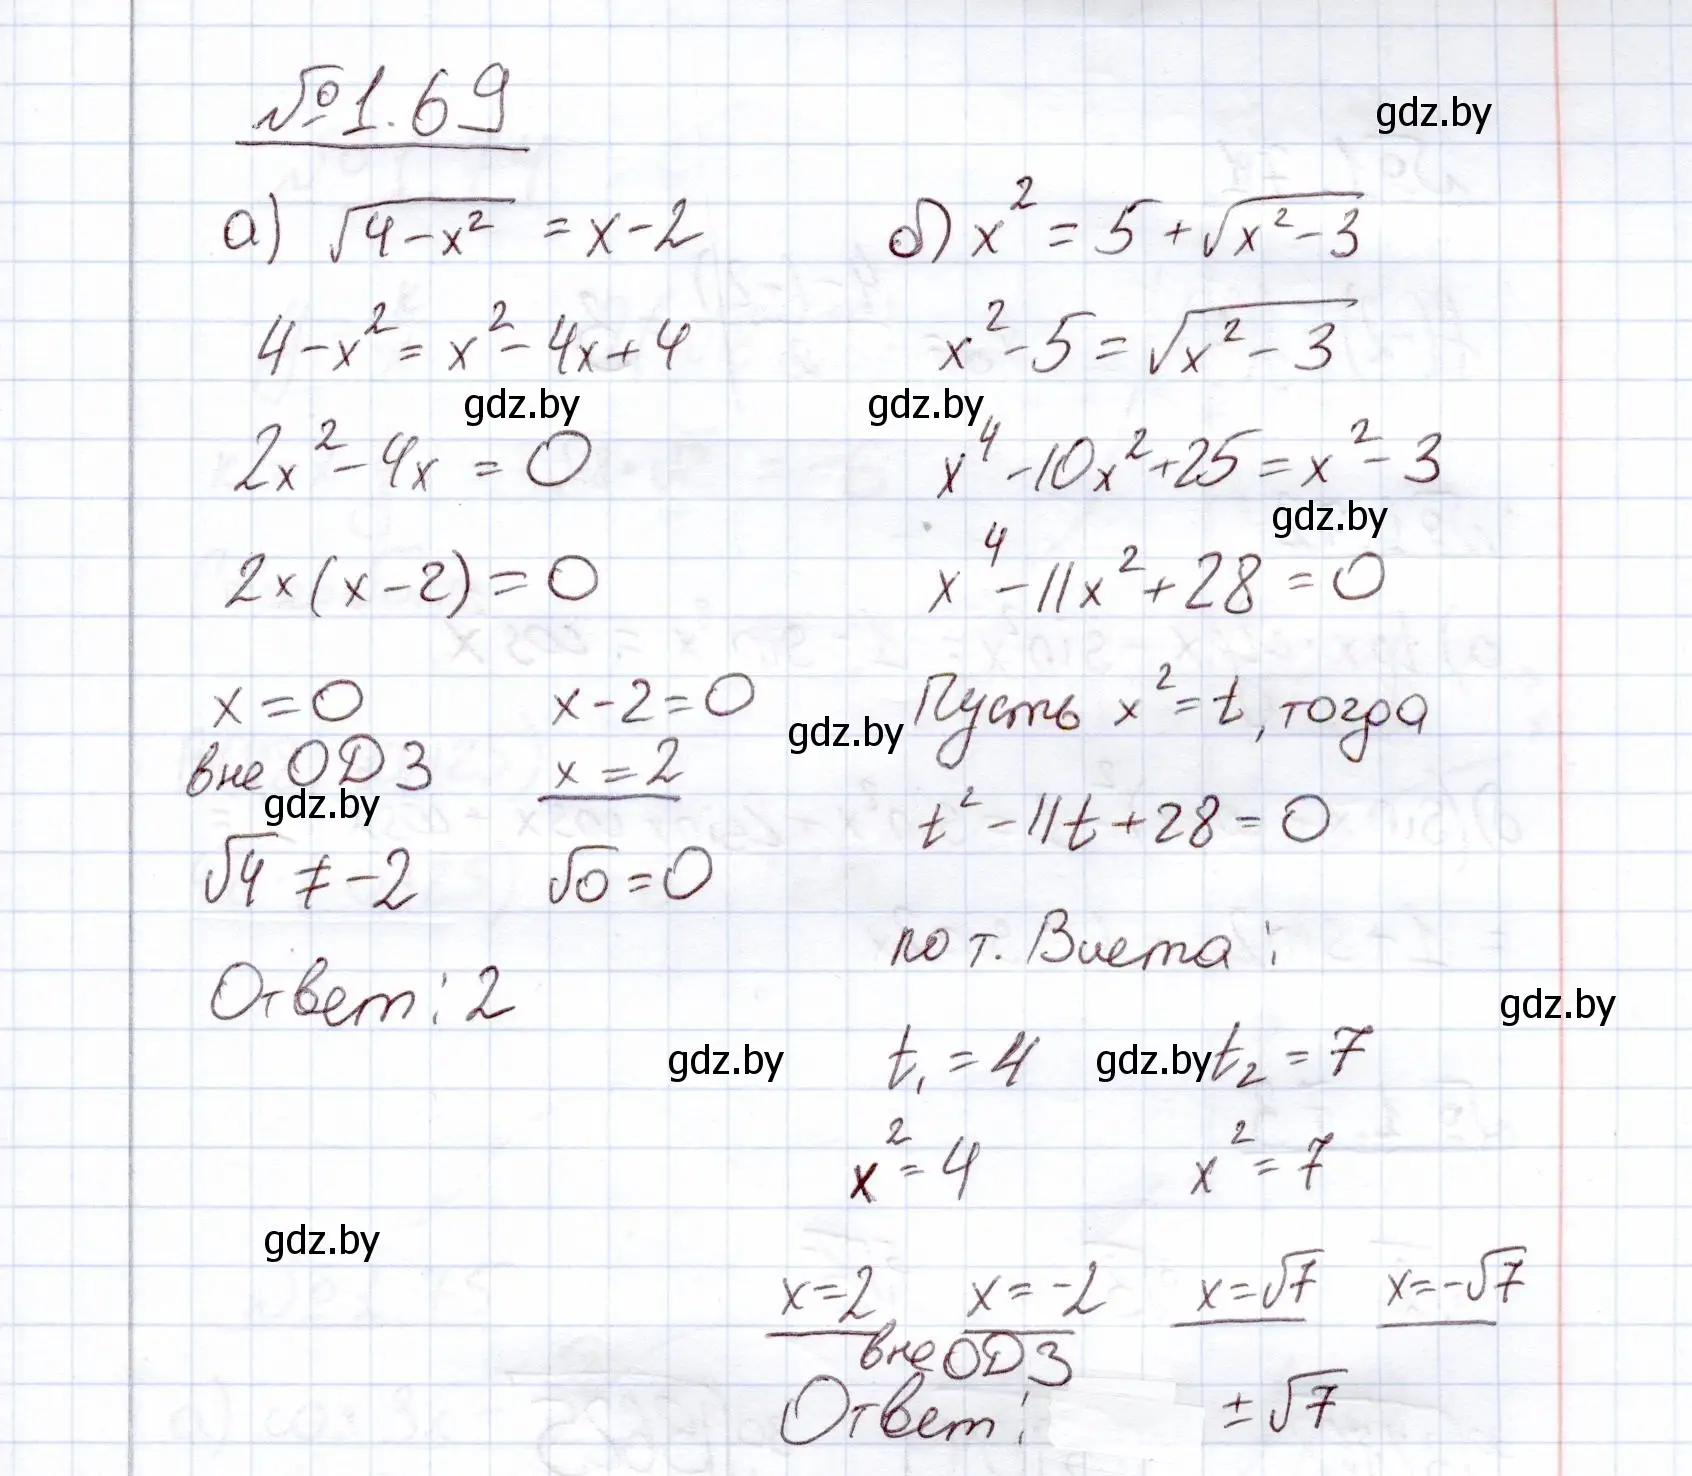 №1.69
gdz.by
а) √(4-x²) = x-2
4-x² = x²-4x+4
gdz.by
2x²-4x = 0
2x(x-2) = 0
x = 0 x-2 = 0
вне ОДЗ x = 2
gdz.by
√4 ≠ -2 √0 = 0
Ответ: 2
б) x² = 5 + √(x²-3)
x²-5 = √(x²-3)
gdz.by
x⁴-10x²+25 = x²-3
gdz.by
x⁴-11x²+28 = 0
gdz.by
Пусть x² = t, тогда
t²-11t+28 = 0
по т. Виета:
gdz.by
gdz.by
t₁ = 4 gdz.by t₂ = 7
x² = 4 x² = 7
gdz.by
x=2 x=-2 x=√7 x=-√7
вне ОДЗ
Ответ: ±√7